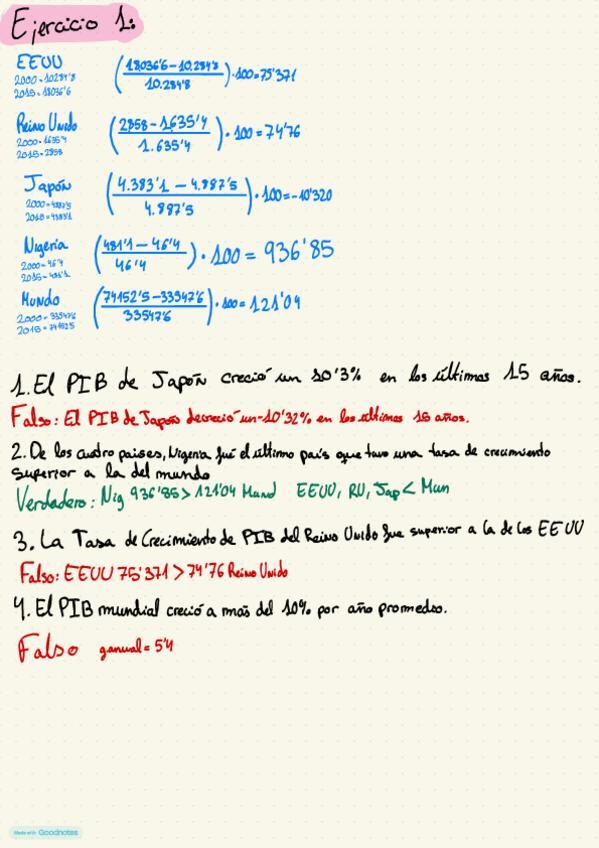 Ejercicio 1:
EEUU
2000=10284'8
2015=18036'6
(18036'6-10.284'8 / 10.284'8)·100=75'371
Reino Unido
2000=1635'4
2015=2858
(2858-1.635'4 / 1.635'4)·100=74'76
Japón
2000=4887'5
2015=4383'1
(4.383'1-4.887'5 / 4.887'5)·100=-10'320
Nigeria
2000=46'4
2015=481'1
(481'1-46'4 / 46'4)·100=936'85
Mundo
2000=33547'6
2015=74152'5
(74152'5-33547'6 / 33547'6)·100=121'04
1.El PIB de Japón creció un 10'3% en los últimos 15 años.
Falso: El PIB de Japón decreció un -10'32% en los últimos 15 años.
2.De los cuatro paises, Nigeria fué el último país que tuvo una tasa de crecimiento
superior a la del mundo
Verdadero: Nig 936'85>121'04 Mund EEUU, RU, Jap< Mun
3. La Tasa de Crecimiento de PIB del Reino Unido fue superior a la de los EEUU
Falso: EEUU 75'371>74'76 Reino Unido
4. El PIB mundial creció a más del 10% por año promedio.
Falso ganual=5'4
Made with Goodnotes